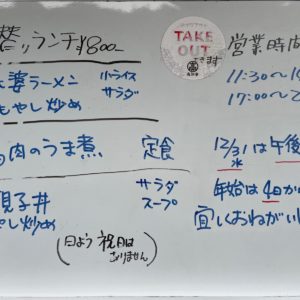 替りランチ ¥800-
婆ラーメン 小ライス サラダ
もやし炒め
肉のうま煮 定食
親子丼 サラダ スープ
やし炒め
(日よう祝日はありません)
TAKE OUT
できます
営業時間
11:30~
17:00~2
12/31 水 は午後
年始は4日か
宜しくおねがい